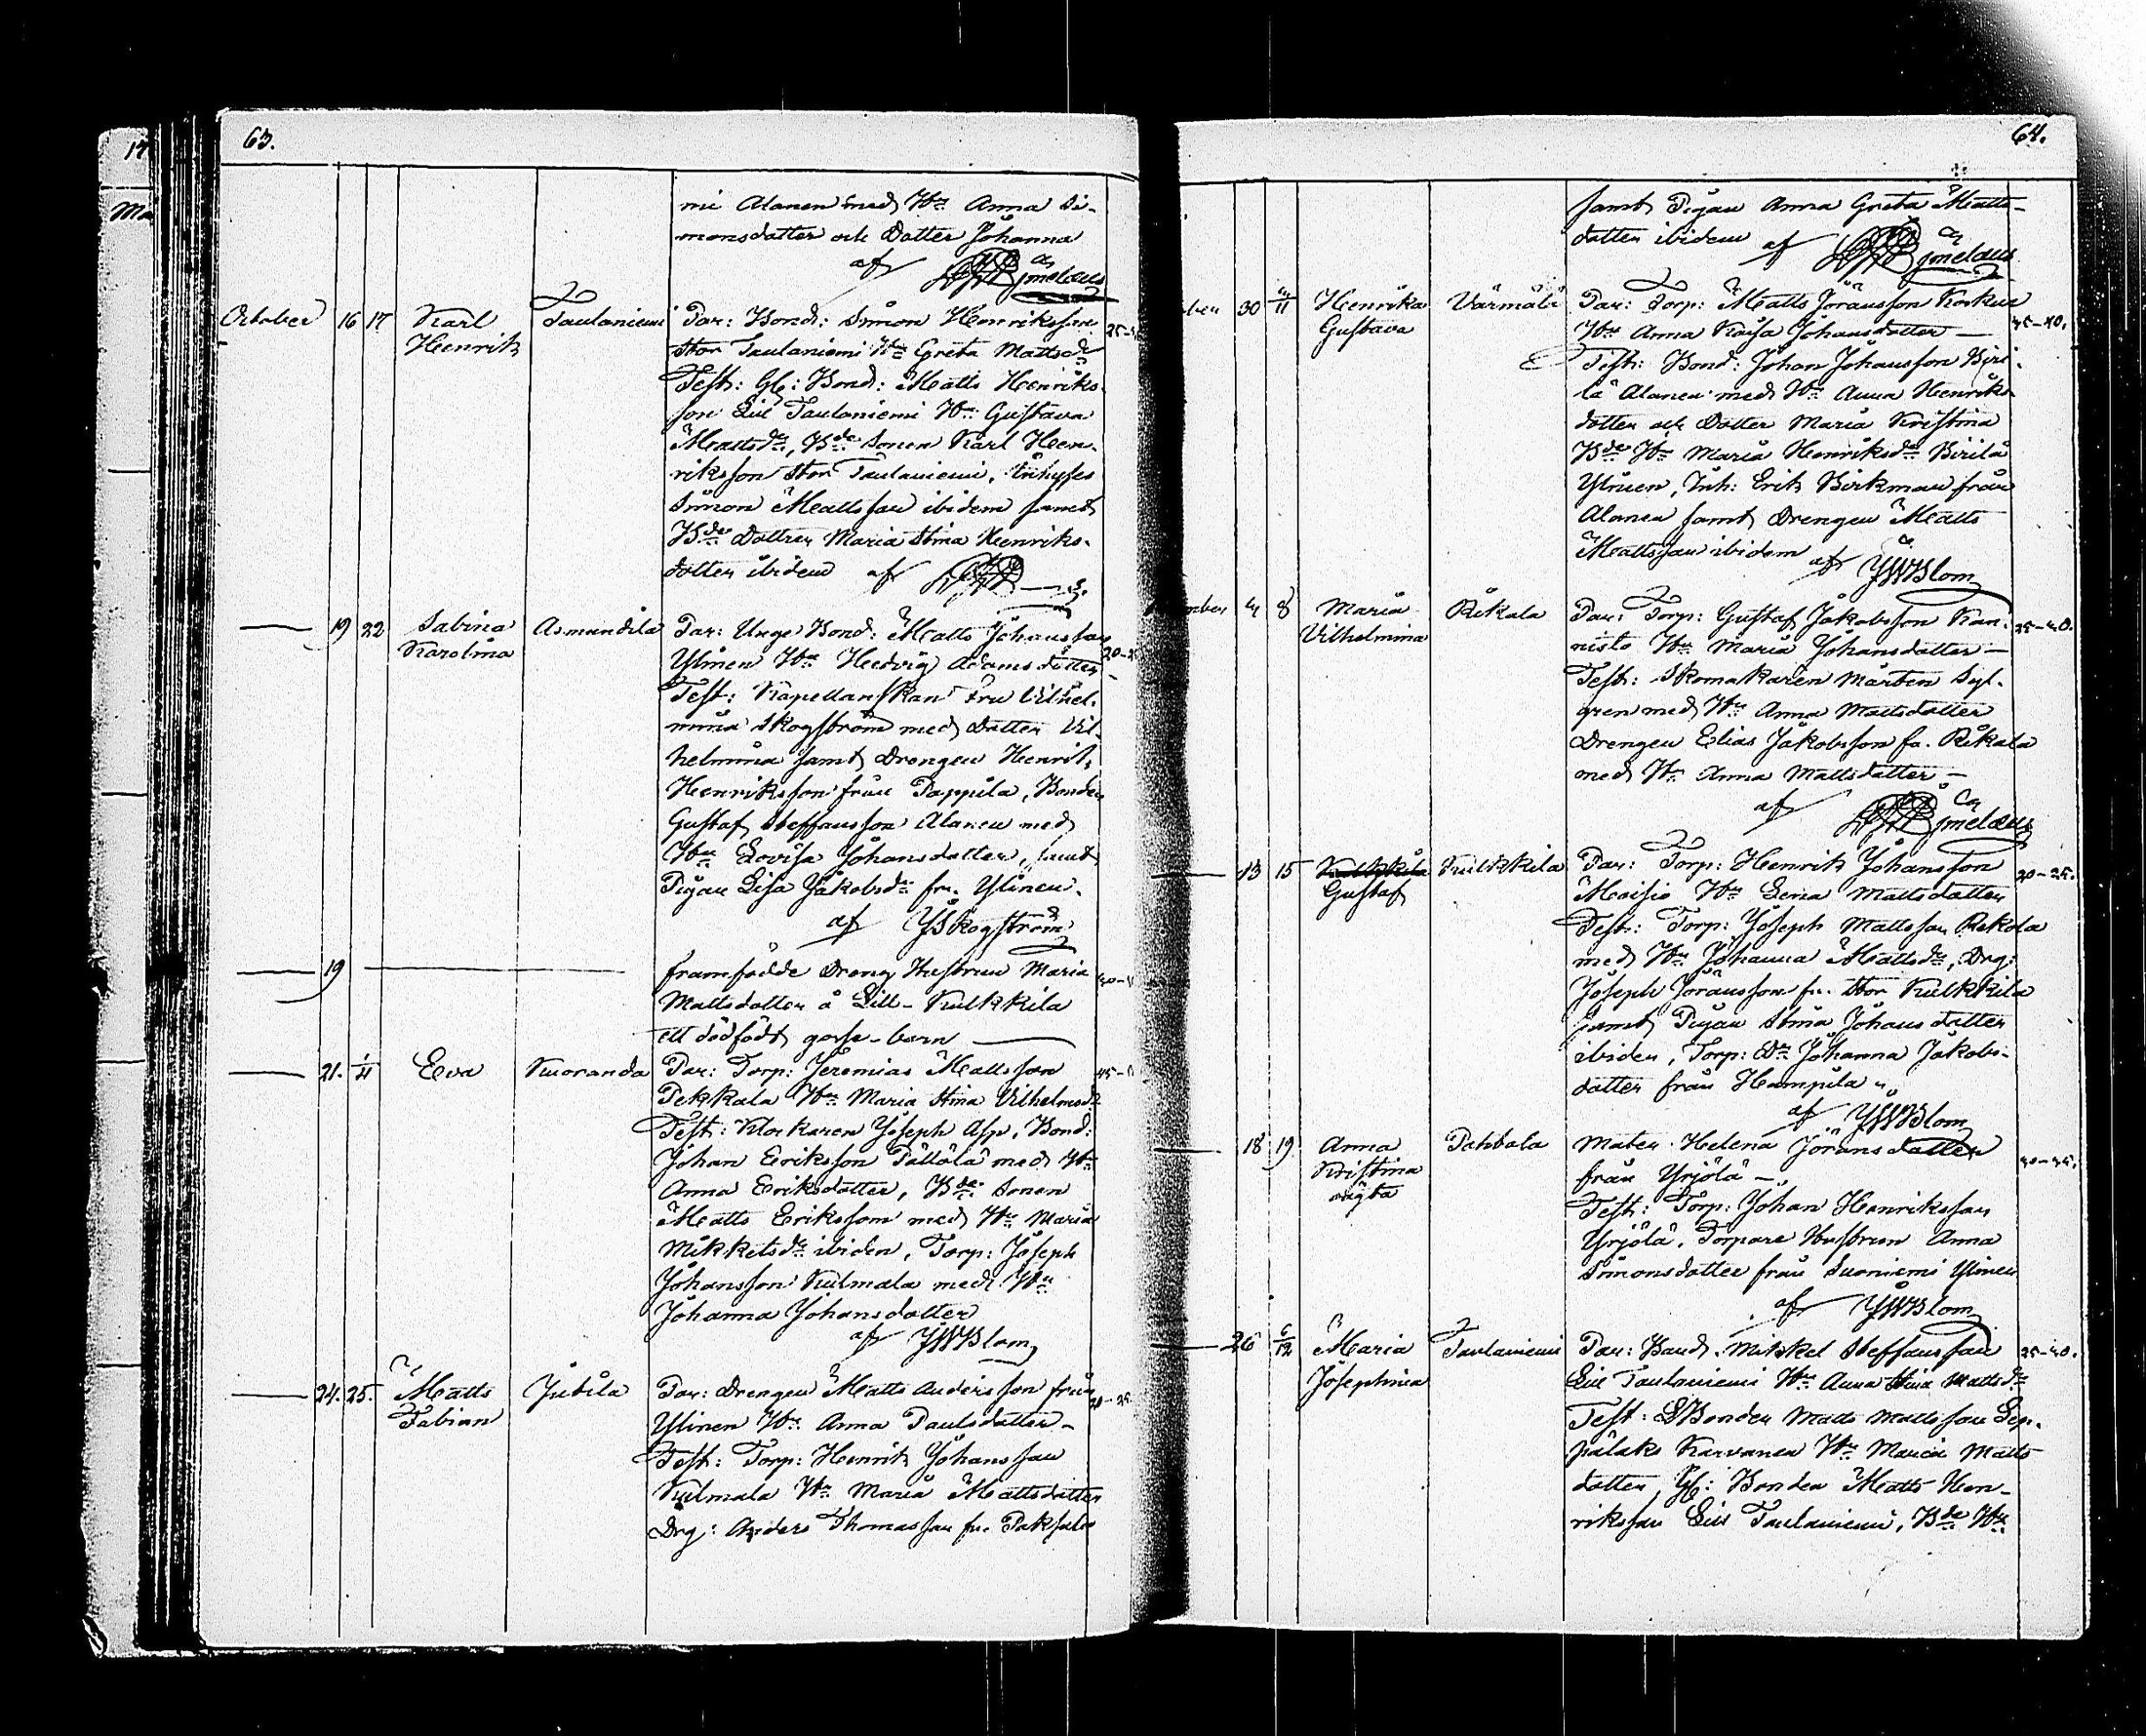 63.
mi Alanen med Hu Anna Si-
monsdatter och Datter Johanna
af
October 16 17 Karl Henrik Taulaniemi Par: Bond: Simon Henriksson
Stor Taulaniemi Hu Greta Mattsdr
Test: Gl: Bond: Matts Henriks-
son Lill Taulaniemi Hu Gustava
Mattsdr, Bde Sonen Karl Hen-
riksson Stor Taulaniemi, Inhyses
Simon Mattsson ibidem samt
Bde Dottren Maria Stina Henriks-
dotter ibidem af
19 22 Sabina Karolina Asmundila Par: Unge Bond: Matts Johansson
Ylinen Hu Hedvig Adamsdotter
Test: Kapellanskan Fru Vilhel-
mina Skogström med Dotter Vil-
helmina samt Drengen Henrik
Henriksson från Pappila, Bonden
Gustaf Steffansson Alanen med
Hu Lovisa Johansdotter, samt
Pigan Lisa Jakobsdr fr. Ylinen.
af Skogström
19 framfödde Dreng Hustrun Maria
Mattsdotter å Lill-Kulkkila
ett dödfödt gosse-barn
21. 1/11 Eva Kuoranda Par: Torp: Jeremias Mattsson 45-
Pekkala Hu Maria Stina Vilhelmsdr
Test: Klockaren Joseph Asp, Bond:
Johan Eriksson Pällölä med Hu
Anna Eriksdotter, Bde Sonen
Matts Eriksson med Hu Maria
Mikkelsdr ibidem, Torp: Joseph
Johansson Kulmala med Hu
Johanna Johansdotter
af JWBlom
24. 25. Matts Fabian Jutila Par: Drengen Matts Andersson från 20-25.
Ylinen Hu Anna Paulsdatter
Test: Torp: Henrik Johansson
Kulmala Hu Maria Mattsdatter
Drg: Anders Thomasson fr.
64.
samt Pigan Anna Greta Matts-
dotter ibidem af
30 4/11 Henrika Gustava Värmälä Par: Torp: Matts Jöransson
Hu Anna Kaisa Johansdotter
Test: Bond: Johan Johansson Biri-
lä Alanen med Hu Anna Henriks-
dotter och Dotter Maria Kristina
Bde Hu Maria Henriksdr Birilä
Ylinen, Inh: Erik Birkman från
Alanen samt Drengen Matts
Mattsson ibidem af JWBlom
4 8 Maria Vilhelmina Rekala Par: Torp: Gustaf Jakobsson Kan- 25-30.
nisto Hu Maria Johansdatter
Test: Skomakaren Mårten Sjö-
gren med Hu Anna Mattsdatter
Drengen Elias Jakobsson fr. Rekala
med Hu Anna Mattsdatter
af
13 15 Gustaf Kulkkila Par: Torp: Henrik Johansson 20-25.
Moisio Hu Lena Mattsdatter
Test: Torp: Joseph Mattsson Rekola
med Hu Johanna Mattsdr, Drg:
Joseph Jöransson fr. Stor Kulkkila
samt Pigan Stina Johansdatter
ibidem, Torp: Dr Johanna Jakobs-
datter från Hampula
af JWBlom
18 19 Anna Kristina oägta Pahtala Mater Helena Jöransdatter
från Yrjölä
Test: Torp: Johan Henriksson
Yrjölä, Torpare Hustrun Anna
Simonsdatter från Suoniemi Ylinen
af JWBlom
26 6/12 Maria Josephina Taulaniemi Par: Bond: Mikkel Steffansson
Lill Taulaniemi Hu Anna Stina Mattsdr
Test: Bonden Matts Mattsson Sep-
pälaks Karvanen Hu Maria Matts
datter, Gl: Bonden Matts Hen-
riksson Lill Taulaniemi, Bde Hu